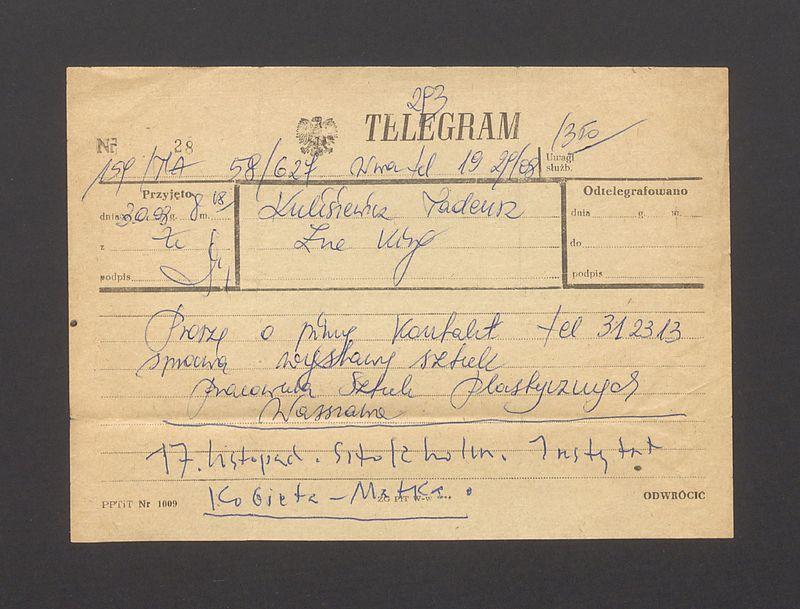 293
TELEGRAM
Nr 28
159/MA 58/627 W-wa tel 19 29/08
Uwagi
służb.
Przyjęto
dnia 30.08 g. 8 m. 18
z
podpis
Kulisiewicz Tadeusz
Odtelegrafowano
dnia g. m.
do
podpis
Proszę o pilny kontakt tel 312313
sprawa wystawy sztuk
Pracownia Sztuk Plastycznych
Warszawa
17. listopad. Sztokholm. Instytut
Kobieta – Matka.
PPTiT Nr 1009
ODWRÓCIĆ